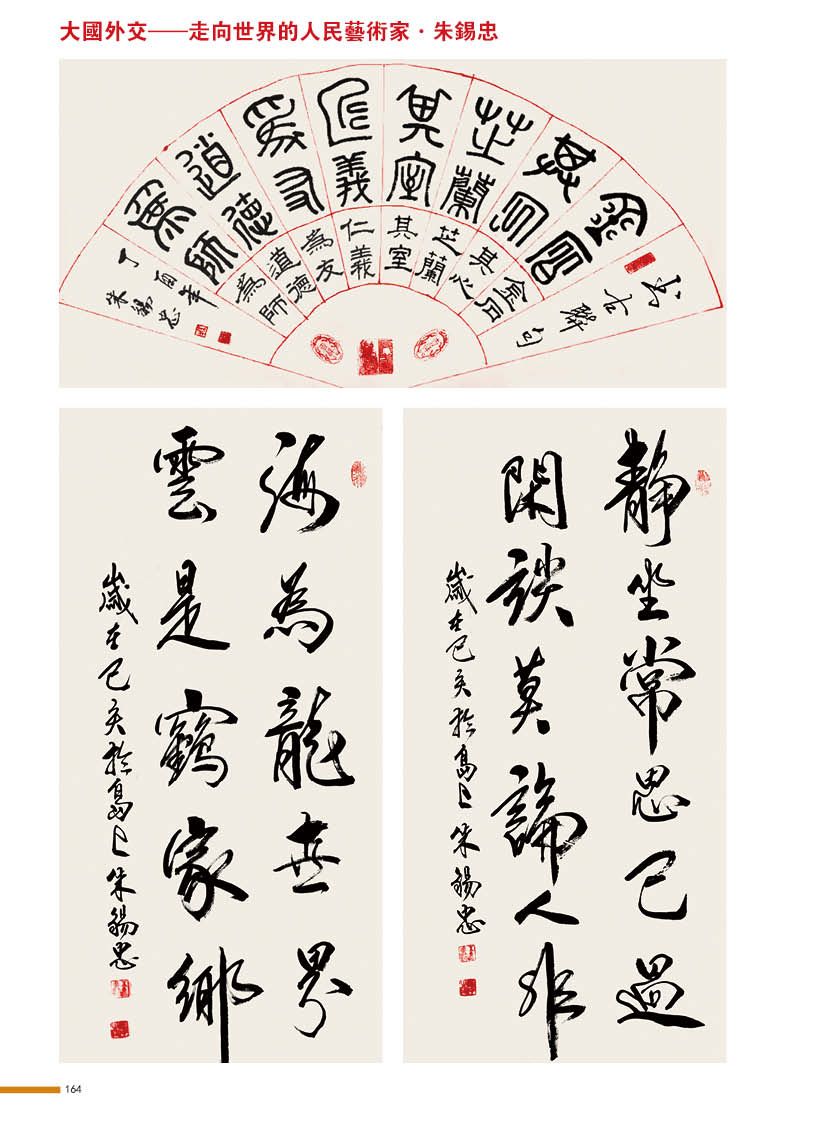 大國外交——走向世界的人民藝術家·朱錫忠
書古聯句
金石
其心
芝蘭
其室
仁義
為友
道德
為師
金石
其心
芝蘭
其室
仁義
為友
道德
為師
丁酉年
朱錫忠
靜坐常思己過
閑談莫論人非
歲在己亥於島上朱錫忠
海為龍世界
雲是鶴家鄉
歲在己亥於島上朱錫忠
164